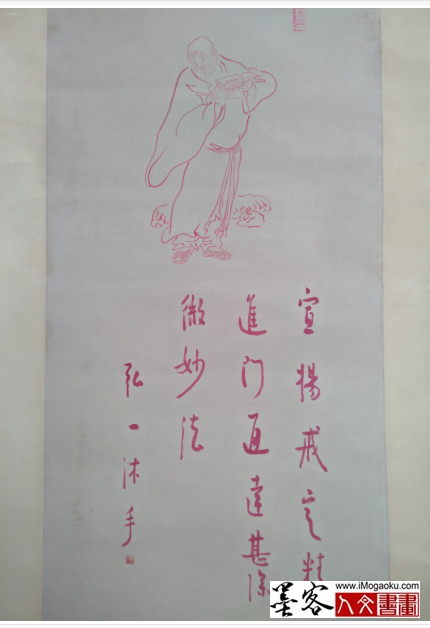 宣扬戒定精
進门通達甚深
微妙法
弘一沐手
墨客
www.iMogaoku.com
人文書畫